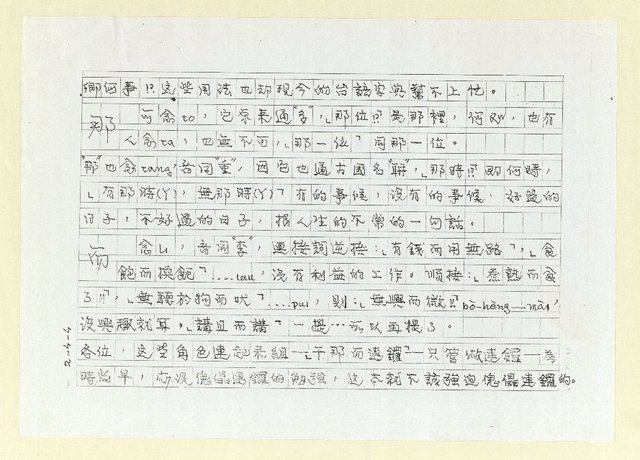 卿何事」這些用法也却現今的台語字典幫不上忙。
那 可念to，它原來通"多"，「那位」是那裡，何処，也有
人念ta，也無不可，「那一位」同那一位。
"那"也念tang，音同"重"，因它也通古國名"聃"，「那時」即何時，
「有那時(Y)，無那時(Y)」有的事候，沒有的事候，好過的
日子，不好過的日子，指人生的不常的一句話。
而 念li，音同"李"，連接詞逆接：「有錢而用無路」，「食
飽而換飽」……lau，沒有利益的工作。順接：「煮熟而食
了」，「無聽於狗而吠」……pui，則：「無興而微」bô-hèng—māi，
沒興趣就算。「講且而講」一提…所以再提了。
各位，這些角色連起來組—「干那而連鑼」—只管做連鑼—為
時尚早，而沒傀儡連鑼的勉強，這本就不該強迫傀儡連鑼的。
2-4-4